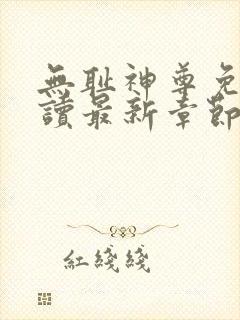 無耻神尊免
讀最新章節
紅綫綫